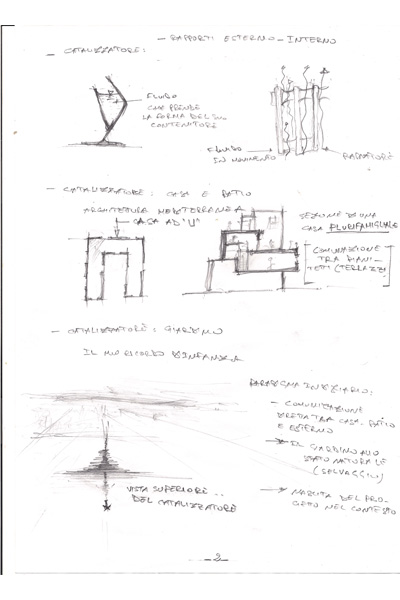 - RAPPORTI ESTERNO - INTERNO
- CATALIZZATORE:
FLUIDO
CHE PRENDE
LA FORMA DEL SUO
CONTENITORE
FLUIDO
IN MOVIMENTO
RADIATORE
- CATALIZZATORE: CASA E PATIO
ARCHITETTURA MEDITERRANEA
CASA AD "U"
SEZIONE DI UNA
CASA PLURIFAMIGLIARE
COMUNICAZIONE
TRA PIANI -
TETTI (TERRAZZI
- CATALIZZATORE: GIARDINO
IL MIO RICORDO D'INFANZIA
PARADIGMA INIZIARIO:
- COMUNICAZIONE
TRA CASA - PATIO
E ESTERNO
IL GIARDINO ALLO
STATO NATURALE
(SELVAGGIO)
VISTA SUPERIORE
DEL CATALIZZATORE
NASCITA DEL PRO-
GETTO NEL CONTESTO
- 2 -